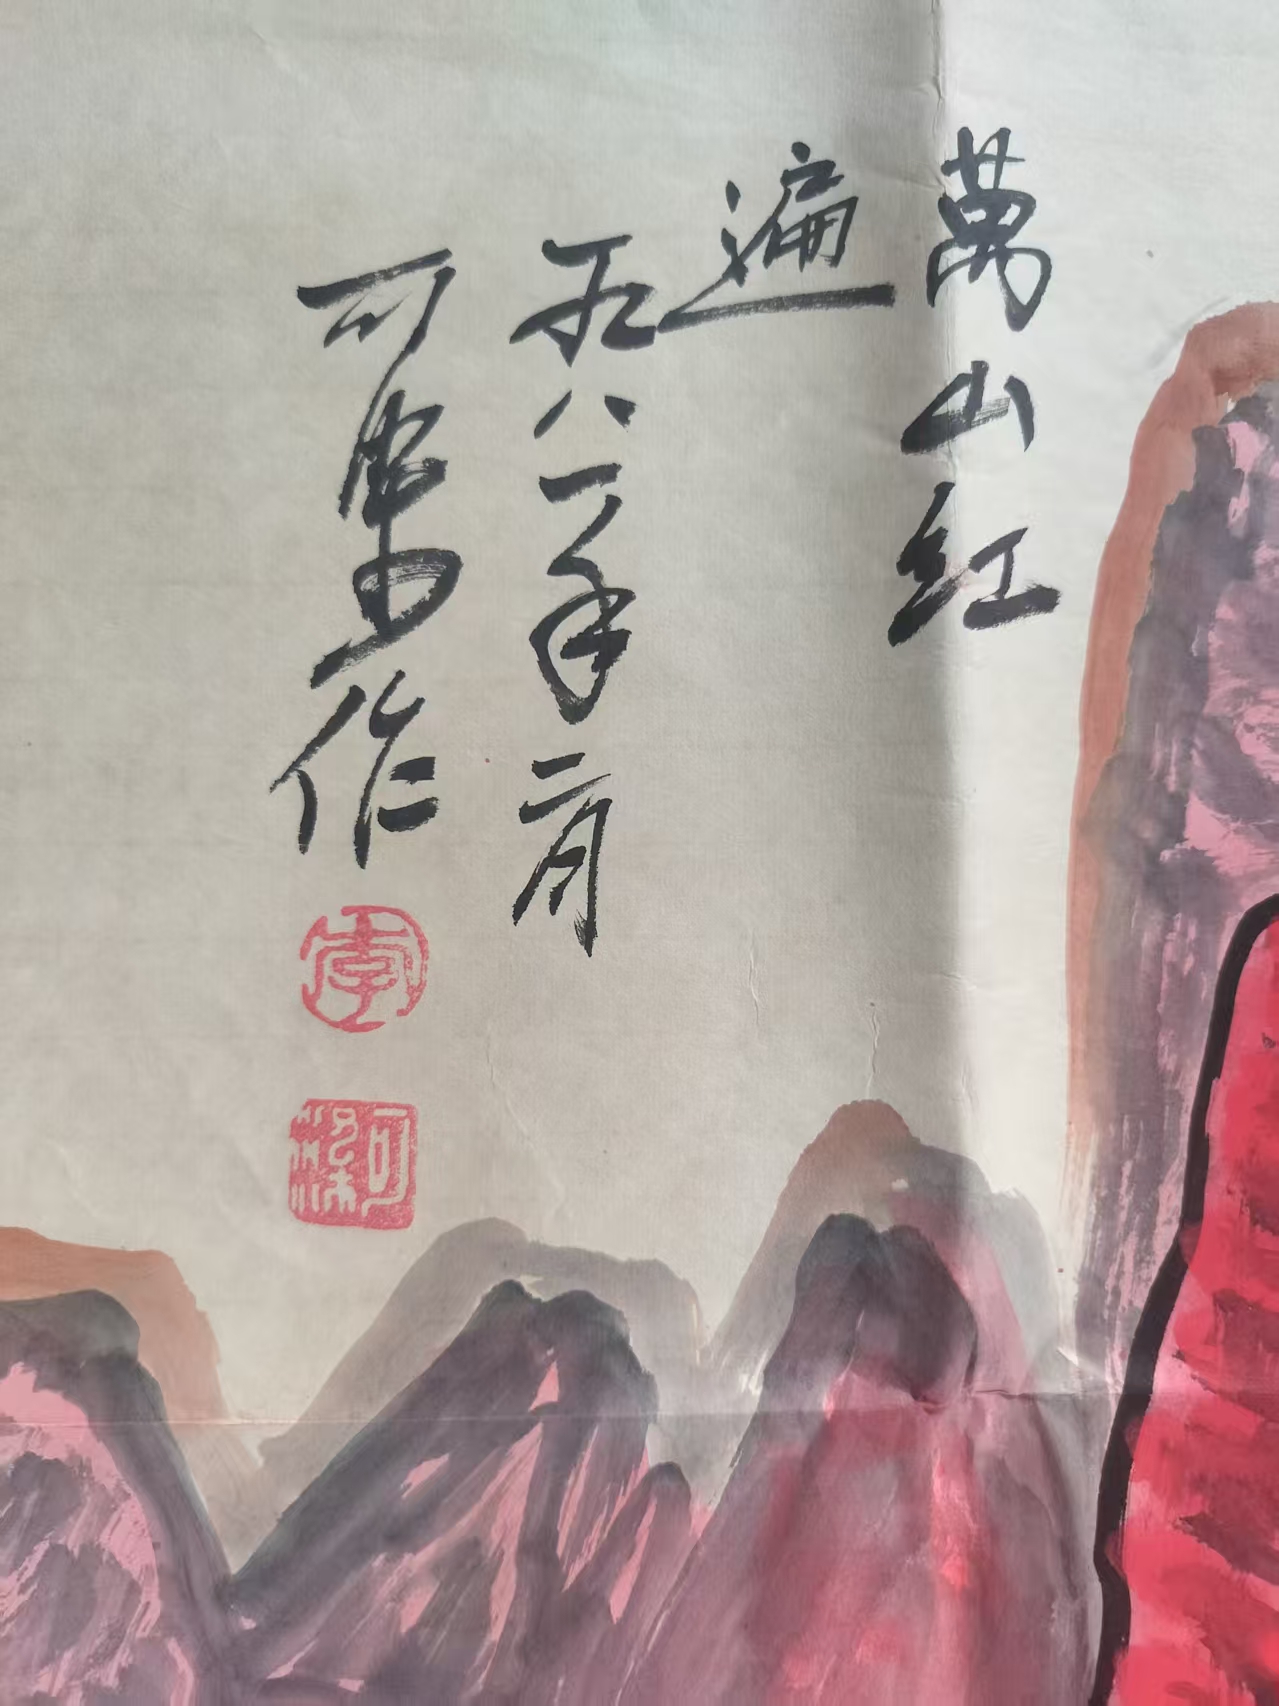 萬山紅
遍
一九八一年二月
可染画作
李
可染